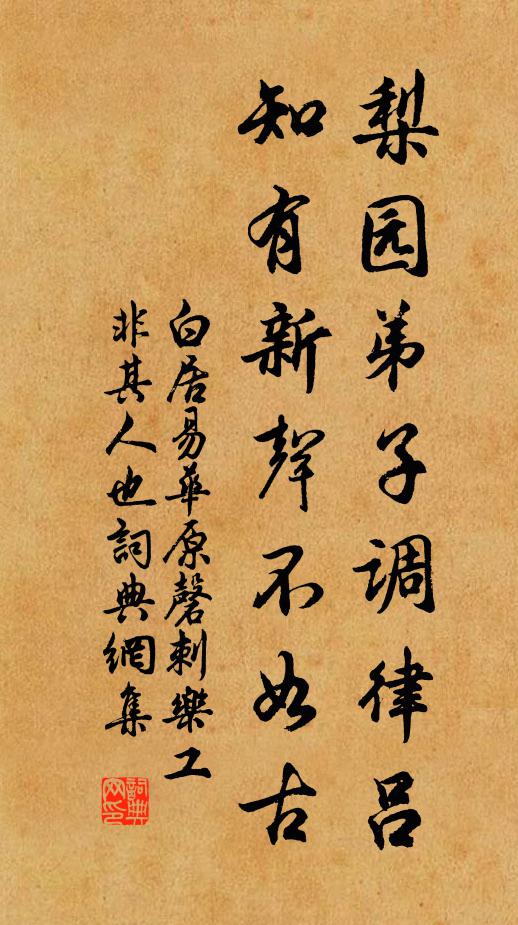 梨园弟子调律吕
知有新聲不如古
白居易華原磬刺樂工
非其人也詞典網集
詞典
网印